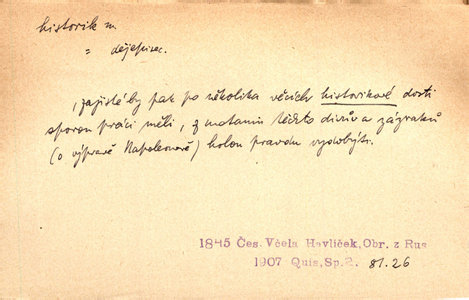 historik m.
= dějepisec.
, zajisté by pak po několika věcích historikové dosti
sporou práci měli, z matanin těchto divův a zázraků
(o výpravě Napoleonově) holou pravdu vydobýti.
1845 Čes. Včela Havlíček, Obr. z Rus
1907 Quis, Sp.2. 81.26